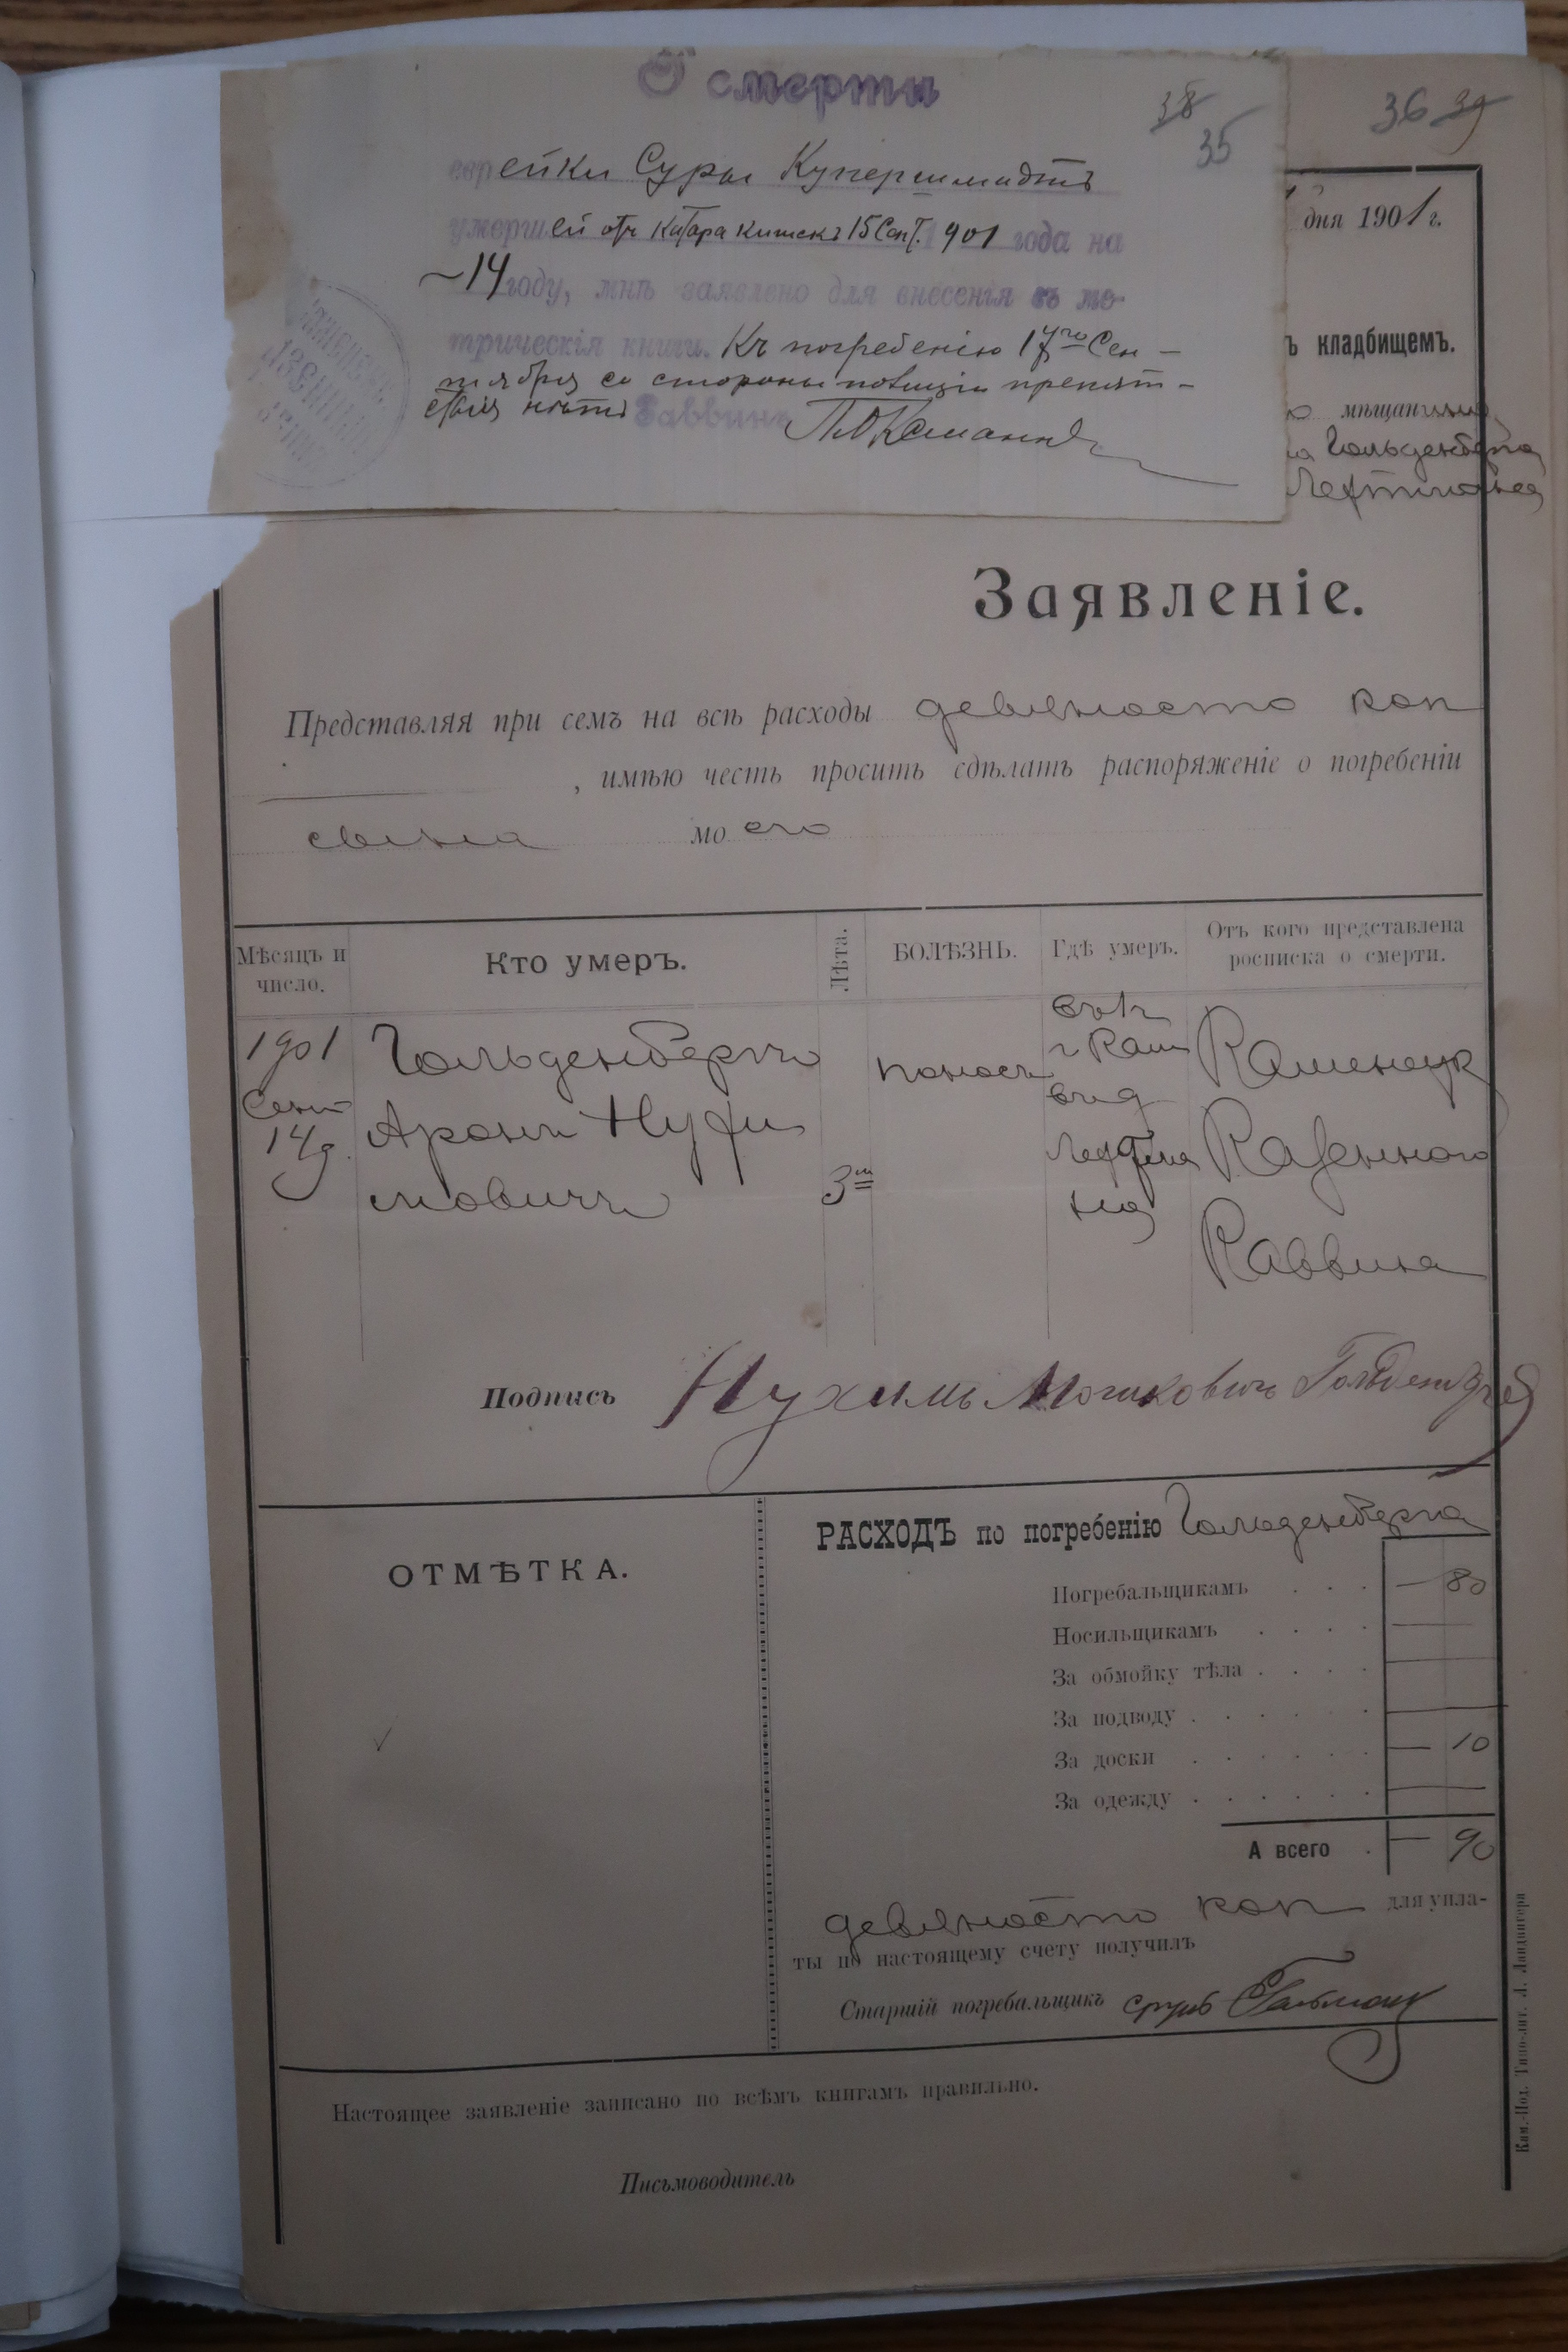 О смерти
38
35
36 39
еврейки Суры Купершмидтъ
умершей отъ катара кишекъ 15 Сент. 1901 года на
14 году, мнѣ заявлено для внесенія въ ме-
трическія книги. Къ погребенію 17го Сен-
тября со стороны полиціи препят-
ствія нѣтъ Раввинъ
дня 1901 г.
ъ кладбищемъ.
мѣщанина
Гольденберга
Заявленіе.
Представляя при семъ на всѣ расходы девяносто коп
, имѣю честь просить сдѣлать распоряженіе о погребеніи
сына моего
Мѣсяцъ и число.
Кто умеръ.
Лѣта.
БОЛѢЗНЬ.
Гдѣ умеръ.
Отъ кого представлена росписка о смерти.
1901
Сент
14 д.
Гольденбергъ
Аронъ Нухи
мовичъ
3
поносъ
въ
г Кам
Каменецк
Казеннаго
Раввина
Подпись Нухимъ Мошковичъ Гольденберг
ОТМѢТКА.
РАСХОДЪ по погребенію Гольденберга
Погребальщикамъ . . . — 80
Носильщикамъ . . . . —
За обмойку тѣла . . . .
За подводу . . . . . —
За доски . . . . . — 10
За одежду . . . . . —
А всего . — 90
девяносто коп для упла-
ты по настоящему счету получилъ
Старшій погребальщикъ сруль
Настоящее заявленіе записано по всѣмъ книгамъ правильно.
Письмоводитель
Кам.-Под. Типо-лит. Л. Ландвигера